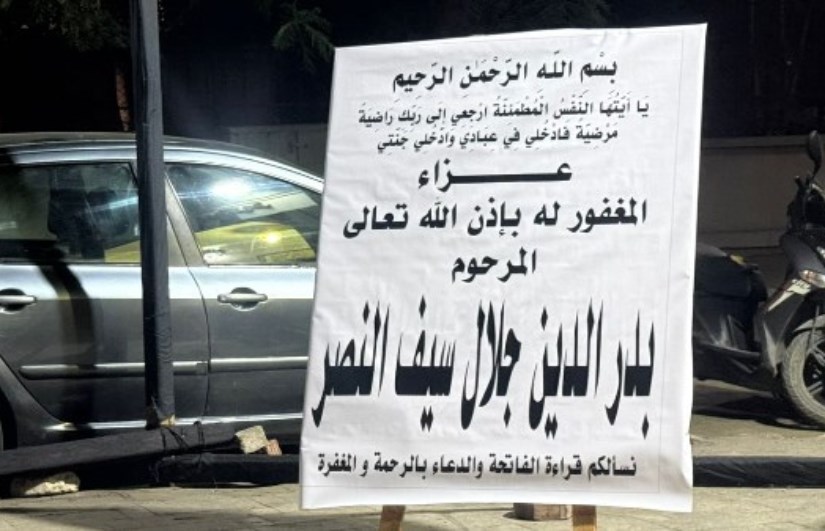 بِسْمِ اللّه الرَّحْمَٰنِ الرَّحِيمِ
يَا أَيَّتُهَا النَّفْسُ الْمُطْمَئِنَّةُ ارْجِعِي إِلَى رَبِّكِ رَاضِيَةً
مَرْضِيَّةً فَادْخُلِي فِي عِبَادِي وَادْخُلِي جَنَّتِي
عـــــزاء
المغفور له بإذن الله تعالى
المرحوم
بدر الدين جلال سيف النصر
نسألكم قراءة الفاتحة والدعاء بالرحمة و المغفرة